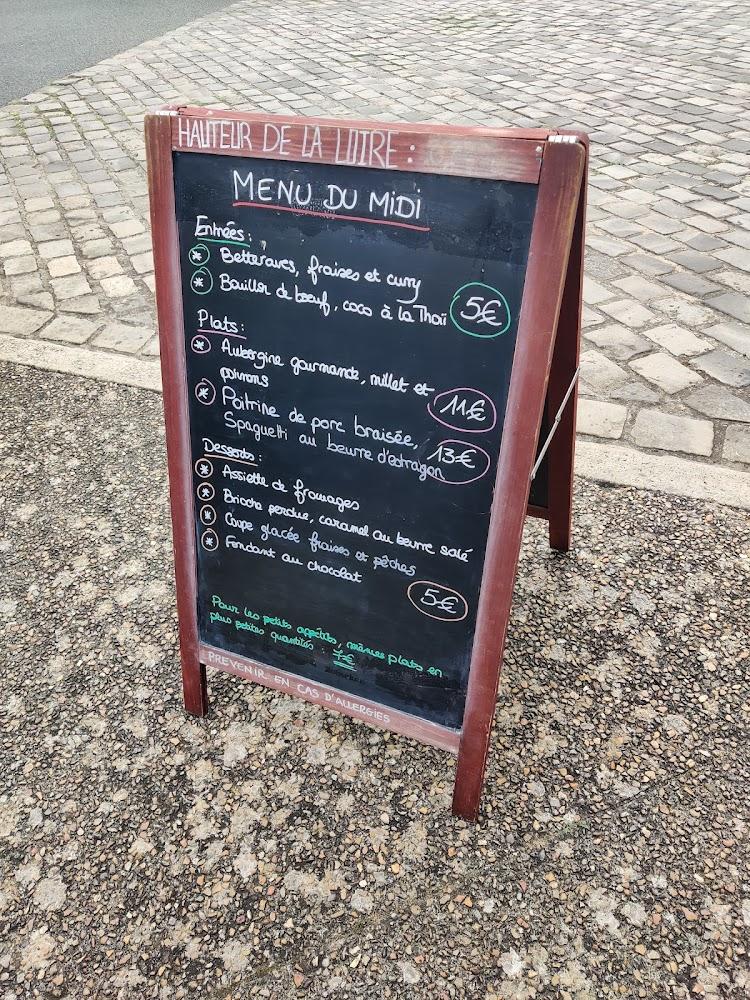 HAUTEUR DE LA LOIRE :
MENU DU MIDI
Entrées :
* Betteraves, fraises et curry
* Bouillon de bœuf, coco à la Thaï
5€
Plats :
* Aubergine gourmande, millet et
poivrons
11€
* Poitrine de porc braisée,
Spaguetti au beurre d'estragon
13€
Desserts :
* Assiette de fromages
* Brioche perdue, caramel au beurre salé
* Coupe glacée fraises et pêches
* Fondant au chocolat
5€
Pour les petits appétits, mêmes plats en
plus petites quantités : 7€
PREVENIR EN CAS D'ALLERGIES